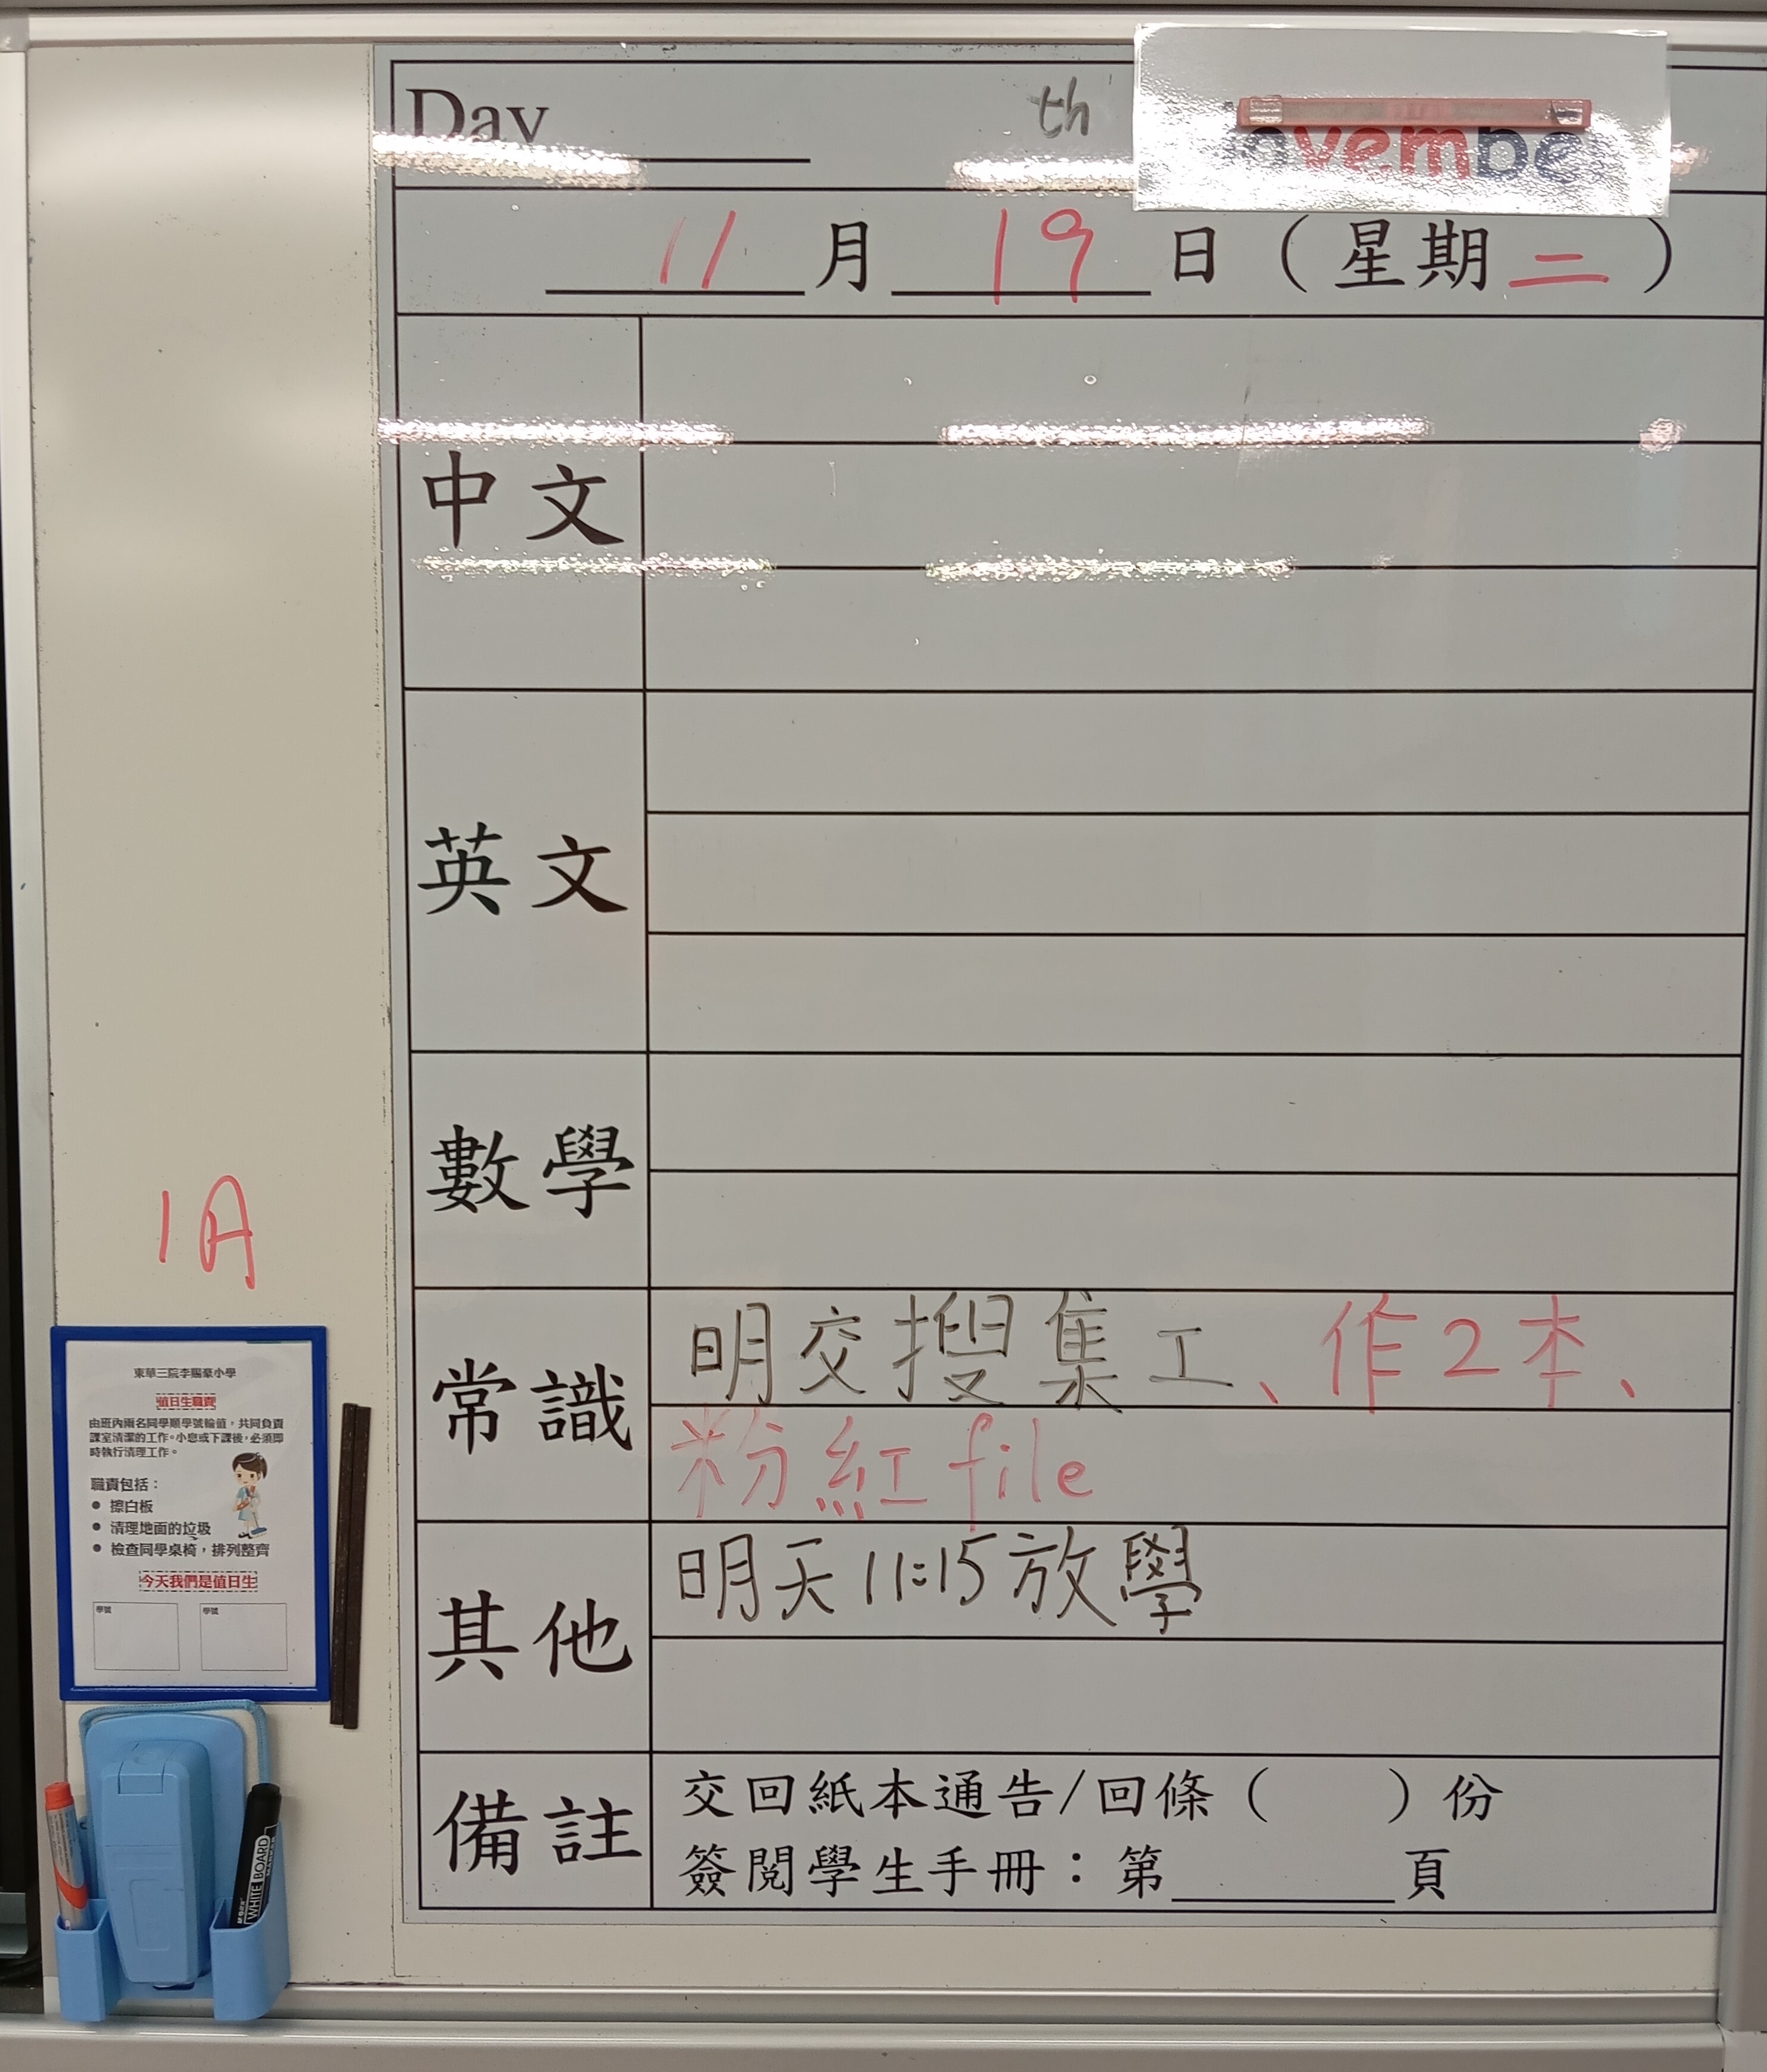 Day
th
November
11月19日（星期二）
中文
英文
數學
常識
明交搜集工、作2本、
粉紅file
其他
明天11:15放學
備註
交回紙本通告/回條（ ）份
簽閱學生手冊：第 頁
1A
東華三院李賜豪小學
值日生職責
由班內兩名同學順學號輪值，共同負責
課室清潔的工作。小息或下課後，必須即
時執行清理工作。
職責包括：
● 擦白板
● 清理地面的垃圾
● 檢查同學桌椅，排列整齊
今天我們是值日生
學號 學號
WHITE BOARD